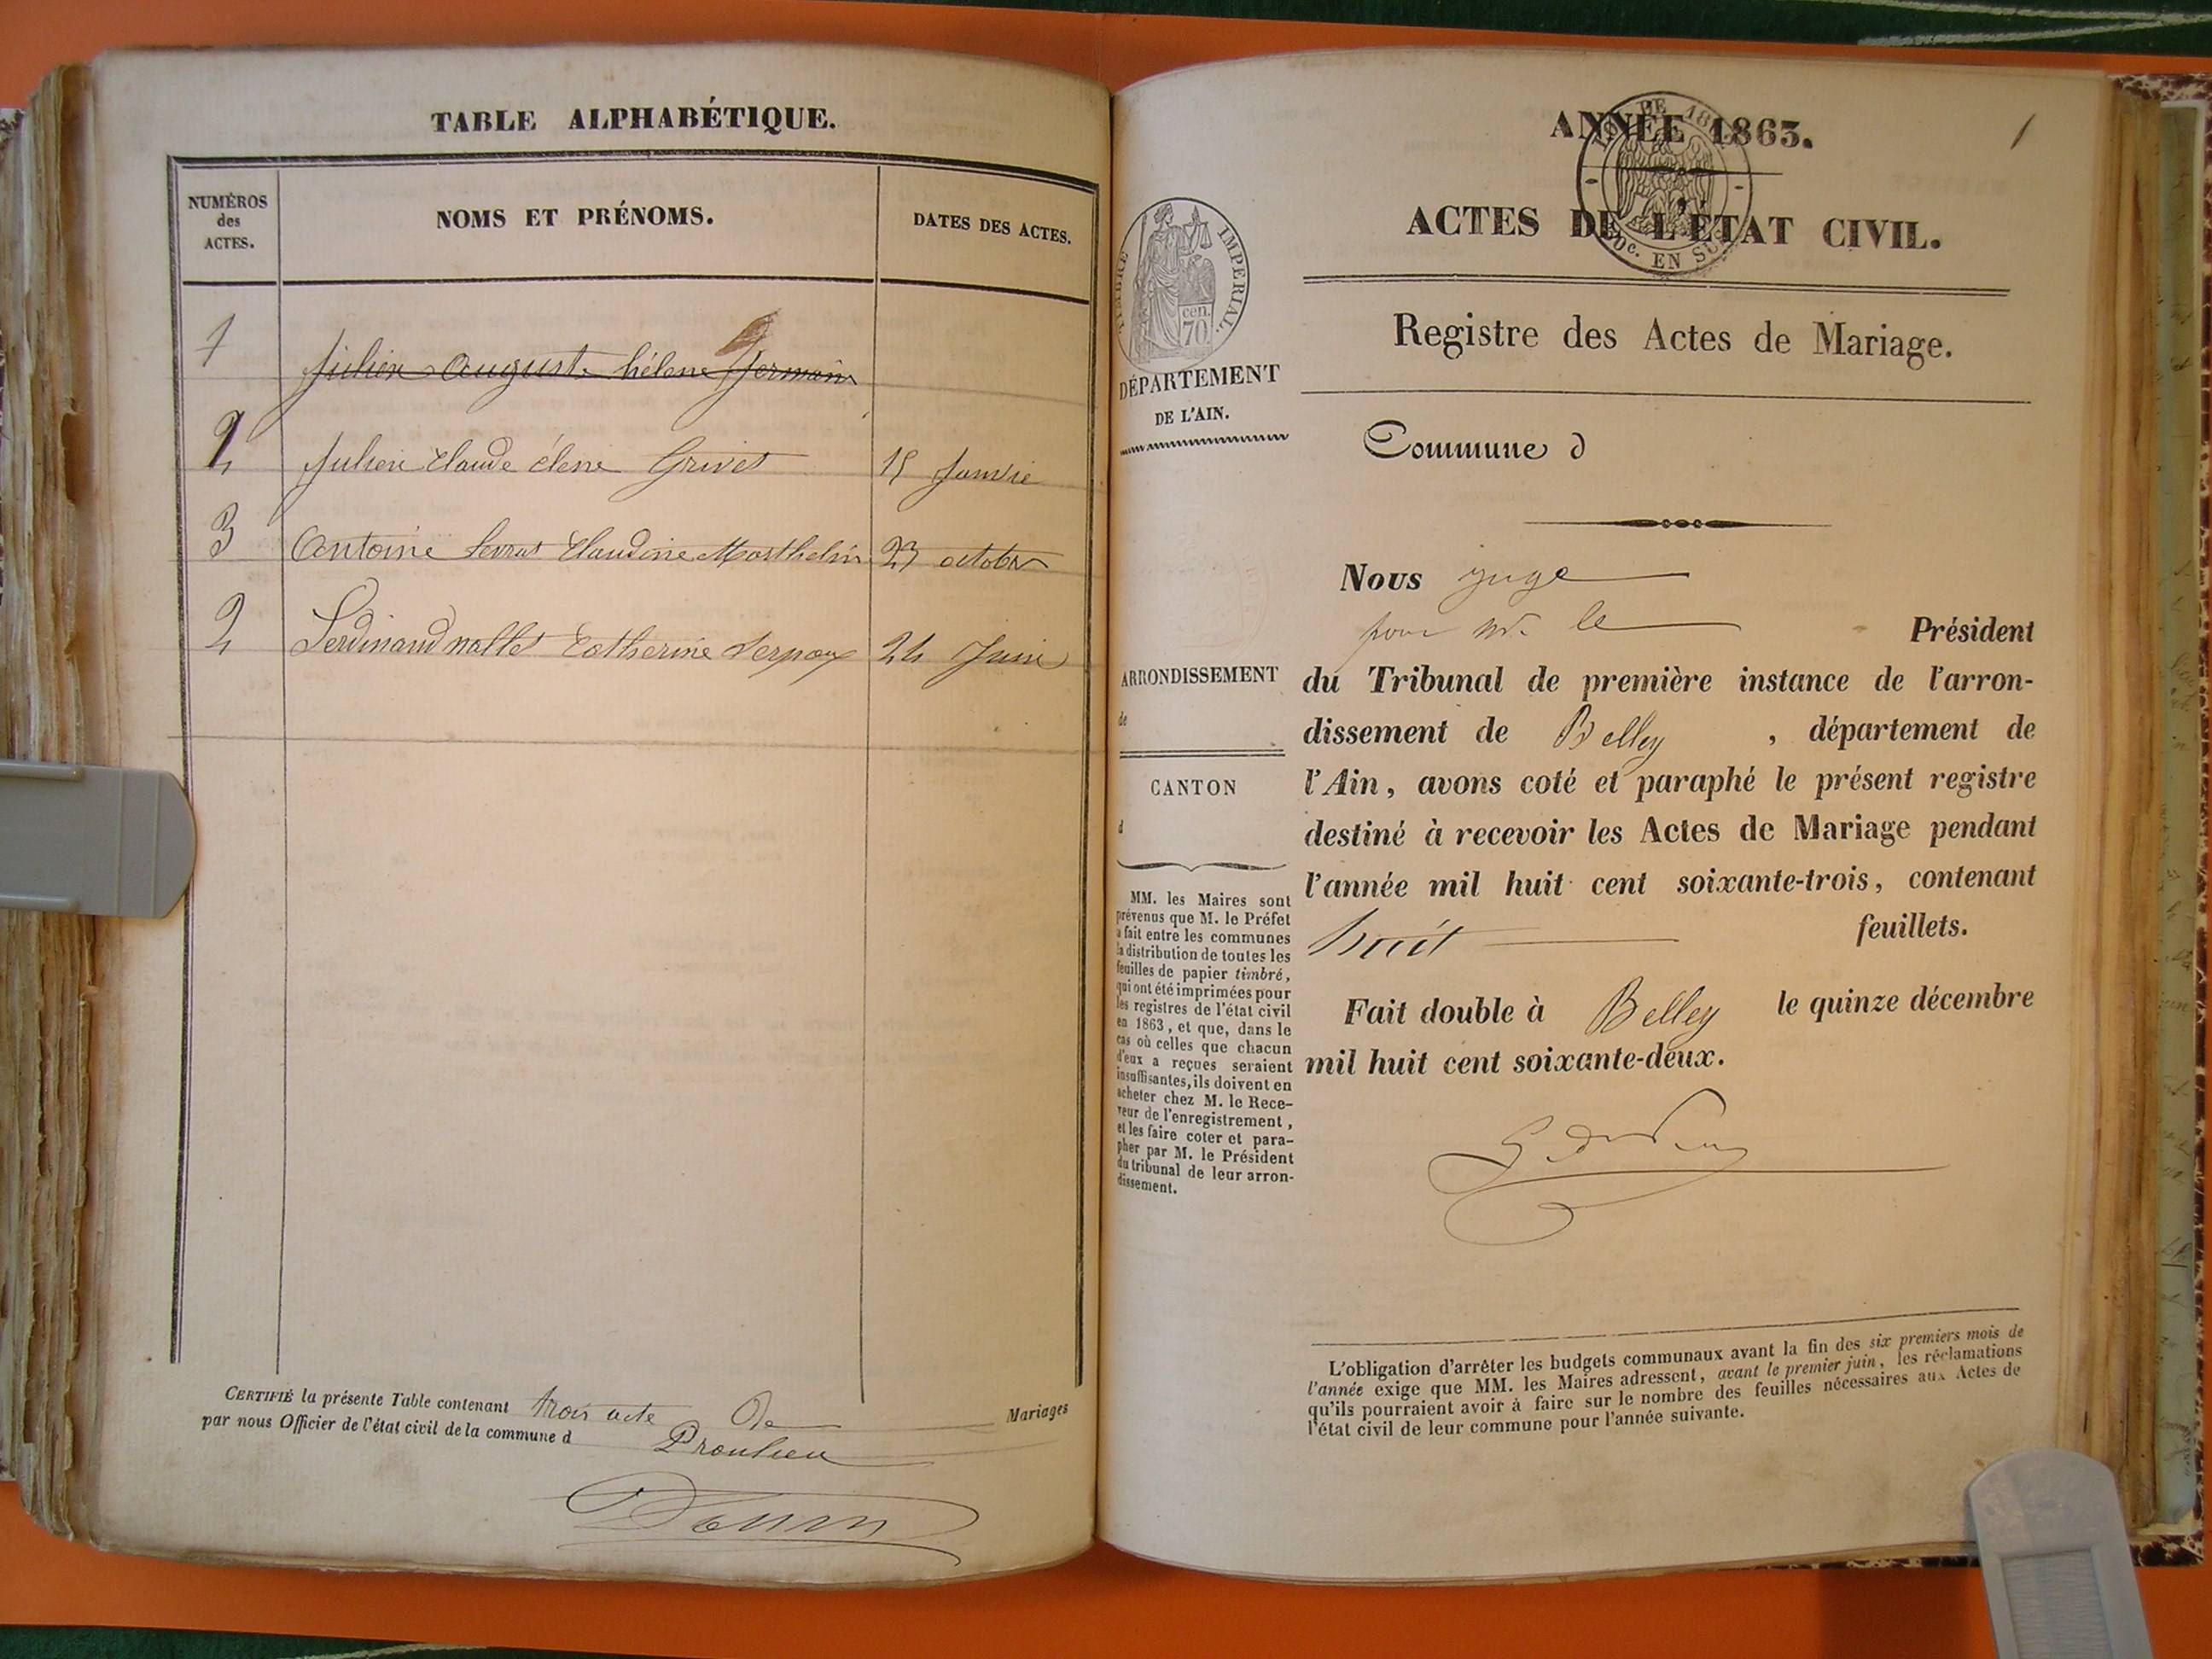 TABLE ALPHABÉTIQUE.
NUMÉROS
des
ACTES.
NOMS ET PRÉNOMS.
DATES DES ACTES.
1 Julien August. hélene Germain
2 Julien Claude élene Grivet 15 Janvie
3 Antoine Claudine 23 octobre
2 Ferdinand nallet Catherine 24 Juin
CERTIFIÉ la présente Table contenant trois acte De Mariages
par nous Officier de l'état civil de la commune d Proulieu
ANNÉE 1863.
1
ACTES DE L'ÉTAT CIVIL.
Registre des Actes de Mariage.
TIMBRE IMPERIAL.
70 cen.
DÉPARTEMENT
DE L'AIN.
Commune d
Nous juge
pour Mr. le Président
ARRONDISSEMENT
de
du Tribunal de première instance de l'arron-
dissement de Belley , département de
l'Ain, avons coté et paraphé le présent registre
destiné à recevoir les Actes de Mariage pendant
l'année mil huit cent soixante-trois, contenant
huit feuillets.
Fait double à Belley le quinze décembre
mil huit cent soixante-deux.
CANTON
d
MM. les Maires sont
prévenus que M. le Préfet
a fait entre les communes
la distribution de toutes les
feuilles de papier timbré,
qui ont été imprimées pour
les registres de l'état civil
en 1863, et que, dans le
cas où celles que chacun
d'eux a reçues seraient
insuffisantes, ils doivent en
acheter chez M. le Rece-
veur de l'enregistrement,
et les faire coter et para-
pher par M. le Président
du tribunal de leur arron-
dissement.
L'obligation d'arrêter les budgets communaux avant la fin des six premiers mois de
l'année exige que MM. les Maires adressent, avant le premier juin, les réclamations
qu'ils pourraient avoir à faire sur le nombre des feuilles nécessaires aux Actes de
l'état civil de leur commune pour l'année suivante.